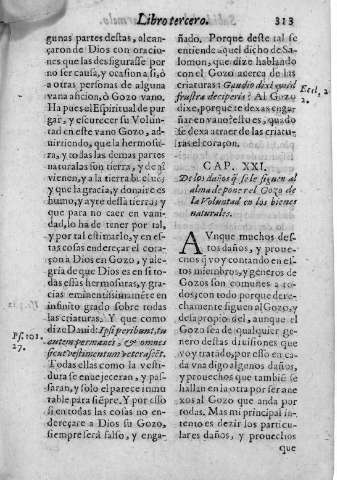 Libro tercero. 313
gunas partes destas, alcan-
çaron de Dios con oracio-
nes que las desfigurasse por
no ser causa, y ocasiona si, ò
a otras personas de alguna
vana aficion, ò Gozo vano.
Ha pues el Espiritual de pur-
gar, y escurecer su Volun-
tad en este vano Gozo, ad-
uirtiendo, que la hermosu-
ra, y todas las demas partes
naturales son tierra, y de aî
vienen, y a la tierra buelue;
y que la gracia, y donaire es
humo, y ayre dessa tierra; y
que para no caer en vani-
dad, lo ha de tener por tal,
y por tal estimarlo, y en es-
tas cosas endereçar el cora-
çon a Dios en Gozo, y ale-
gria de que Dios es en si to-
das essas hermosuras, y gra-
cias eminentissimamẽte en
infinito grado sobre todas
las criaturas. Y que como
dize Dauid: Ipsi peribunt, tu
autem permanes, & omnes
sicut vestimentum veterascẽt.
Todas ellas como la vesti-
dura se enuejeceràn, y pas-
saràn, y solo el parece inmu
table para siẽpre. Y por esso
si en todas las cosas no en-
dereçare a Dios su Gozo,
siempre serà falso, y enga-
Ps. 101.
27.
ñado. Porque deste tal se
entiende aquel dicho de Sa-
lomon, que dize hablando
con el Gozo acerca de las
criaturas: Gaudio dixi quid
frustra deciperis? Al Gozo
dixe, porque te dexas enga-
ñar en vano? esto es, quado
se dexa atraer de las criatu-
ras el coraçon.
Eccl. 2
2.
CAP. XXI.
De los daños q̃ se le siguen al
alma de poner el Gozo de
la Voluntad en los bienes
naturales.
AVnque muchos des-
tos daños, y proue-
chos q̃ voy contando en es-
tos miembros, y generos de
Gozos son comunes a to-
dos; con todo porque dere-
chamente siguen al Gozo, y
desapropio del, aunque el
Gozo sea de qualquier ge-
nero destas diuisiones que
voy tratado, por esso en ca-
da vna digo algunos daños,
y prouechos que tambiẽ se
hallan en la otra por ser ane
xos al Gozo que anda por
todas. Mas mi principal in-
tento es dezir los particu-
lares daños, y prouechos
que